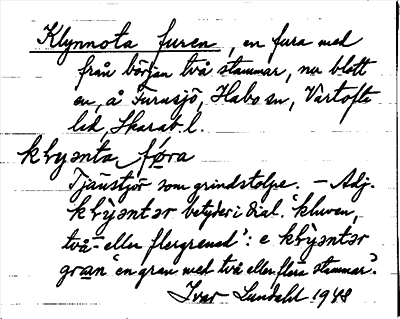 Klynnota furen, en fura med
från början två stammar, nu blott
en, å Furusjö, Habo sn, Vartofta
hd, Skarab. l.
klyənta føra
Tjänstjör som grindstolpe. – Adj.
klyəntər betyder i dial. 'kluven,
två- eller flergrenad': e klyəntər
gran 'en gran med två eller flera stammar'.
Ivar Lundahl 1948